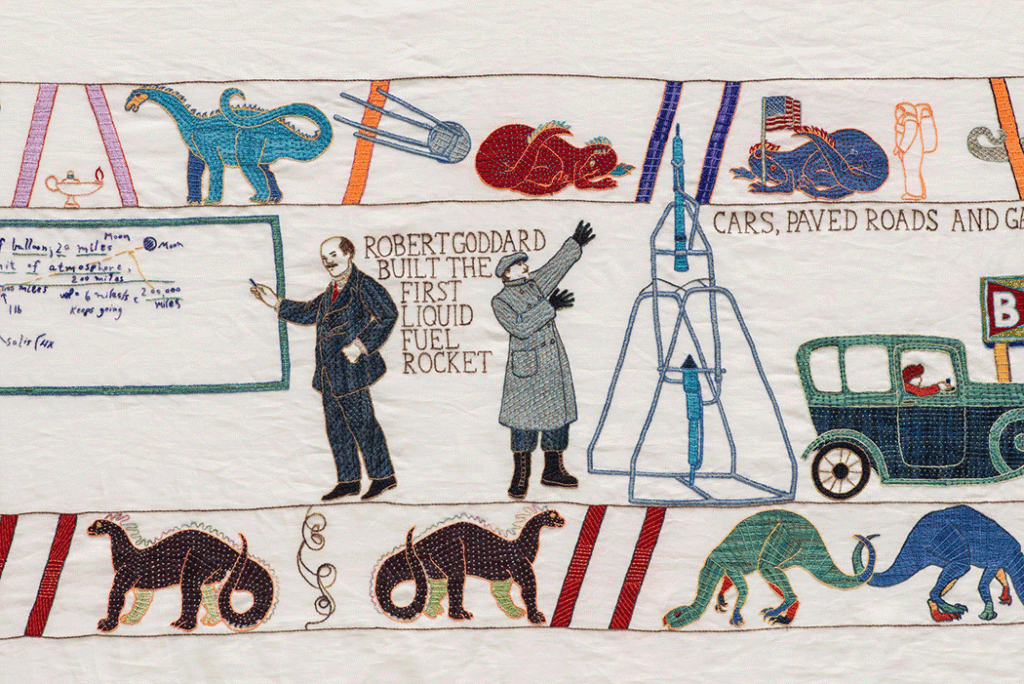 f balloon, 20 miles
Moon
Moon
of atmosphere,
200 miles
miles
6 miles/s
200,000
miles
1 lb
Keeps going
ROBERT GODDARD
BUILT THE
FIRST
LIQUID
FUEL
ROCKET
CARS, PAVED ROADS AND GA
B